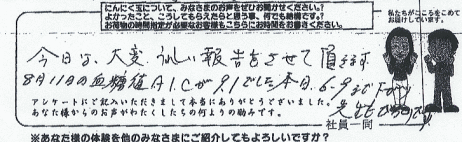 にんにく玉について、みなさまのお声をぜひお聞かせください。
よかったこと、こうしてもらえたらと思う事、何でも結構です。
お荷物の時間指定が必要なお客様もこちらにお時間をお書きください。
私たちがこころをこめて
お届けしています。
今日は、大変うれしい報告をさせて頂きます
8月11日の血糖値A1Cが9.1でした本日6.9まで下がり
先生もびっくりです
アンケートにご記入いただきまして本当にありがとうございました。
あなた様からのお声がわたくしたちの何よりの励みです。
社員一同
※あなた様の体験を他のみなさまにご紹介してもよろしいですか?